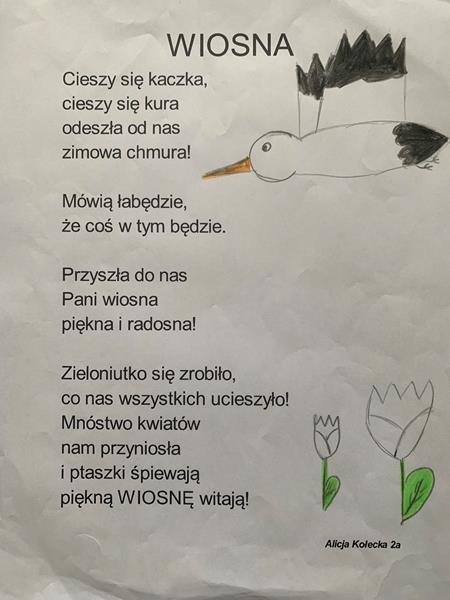 WIOSNA
Cieszy się kaczka,
cieszy się kura
odeszła od nas
zimowa chmura!
Mówią łabędzie,
że coś w tym będzie.
Przyszła do nas
Pani wiosna
piękna i radosna!
Zieloniutko się zrobiło,
co nas wszystkich ucieszyło!
Mnóstwo kwiatów
nam przyniosła
i ptaszki śpiewają
piękną WIOSNĘ witają!
Alicja Kołecka 2a